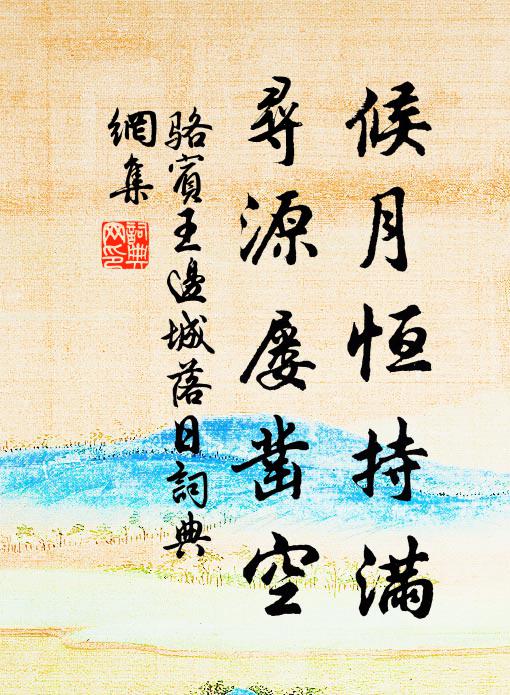 候月恒持滿
尋源屢鑿空
駱賓王邊城落日詞典
網集
詞典
网印